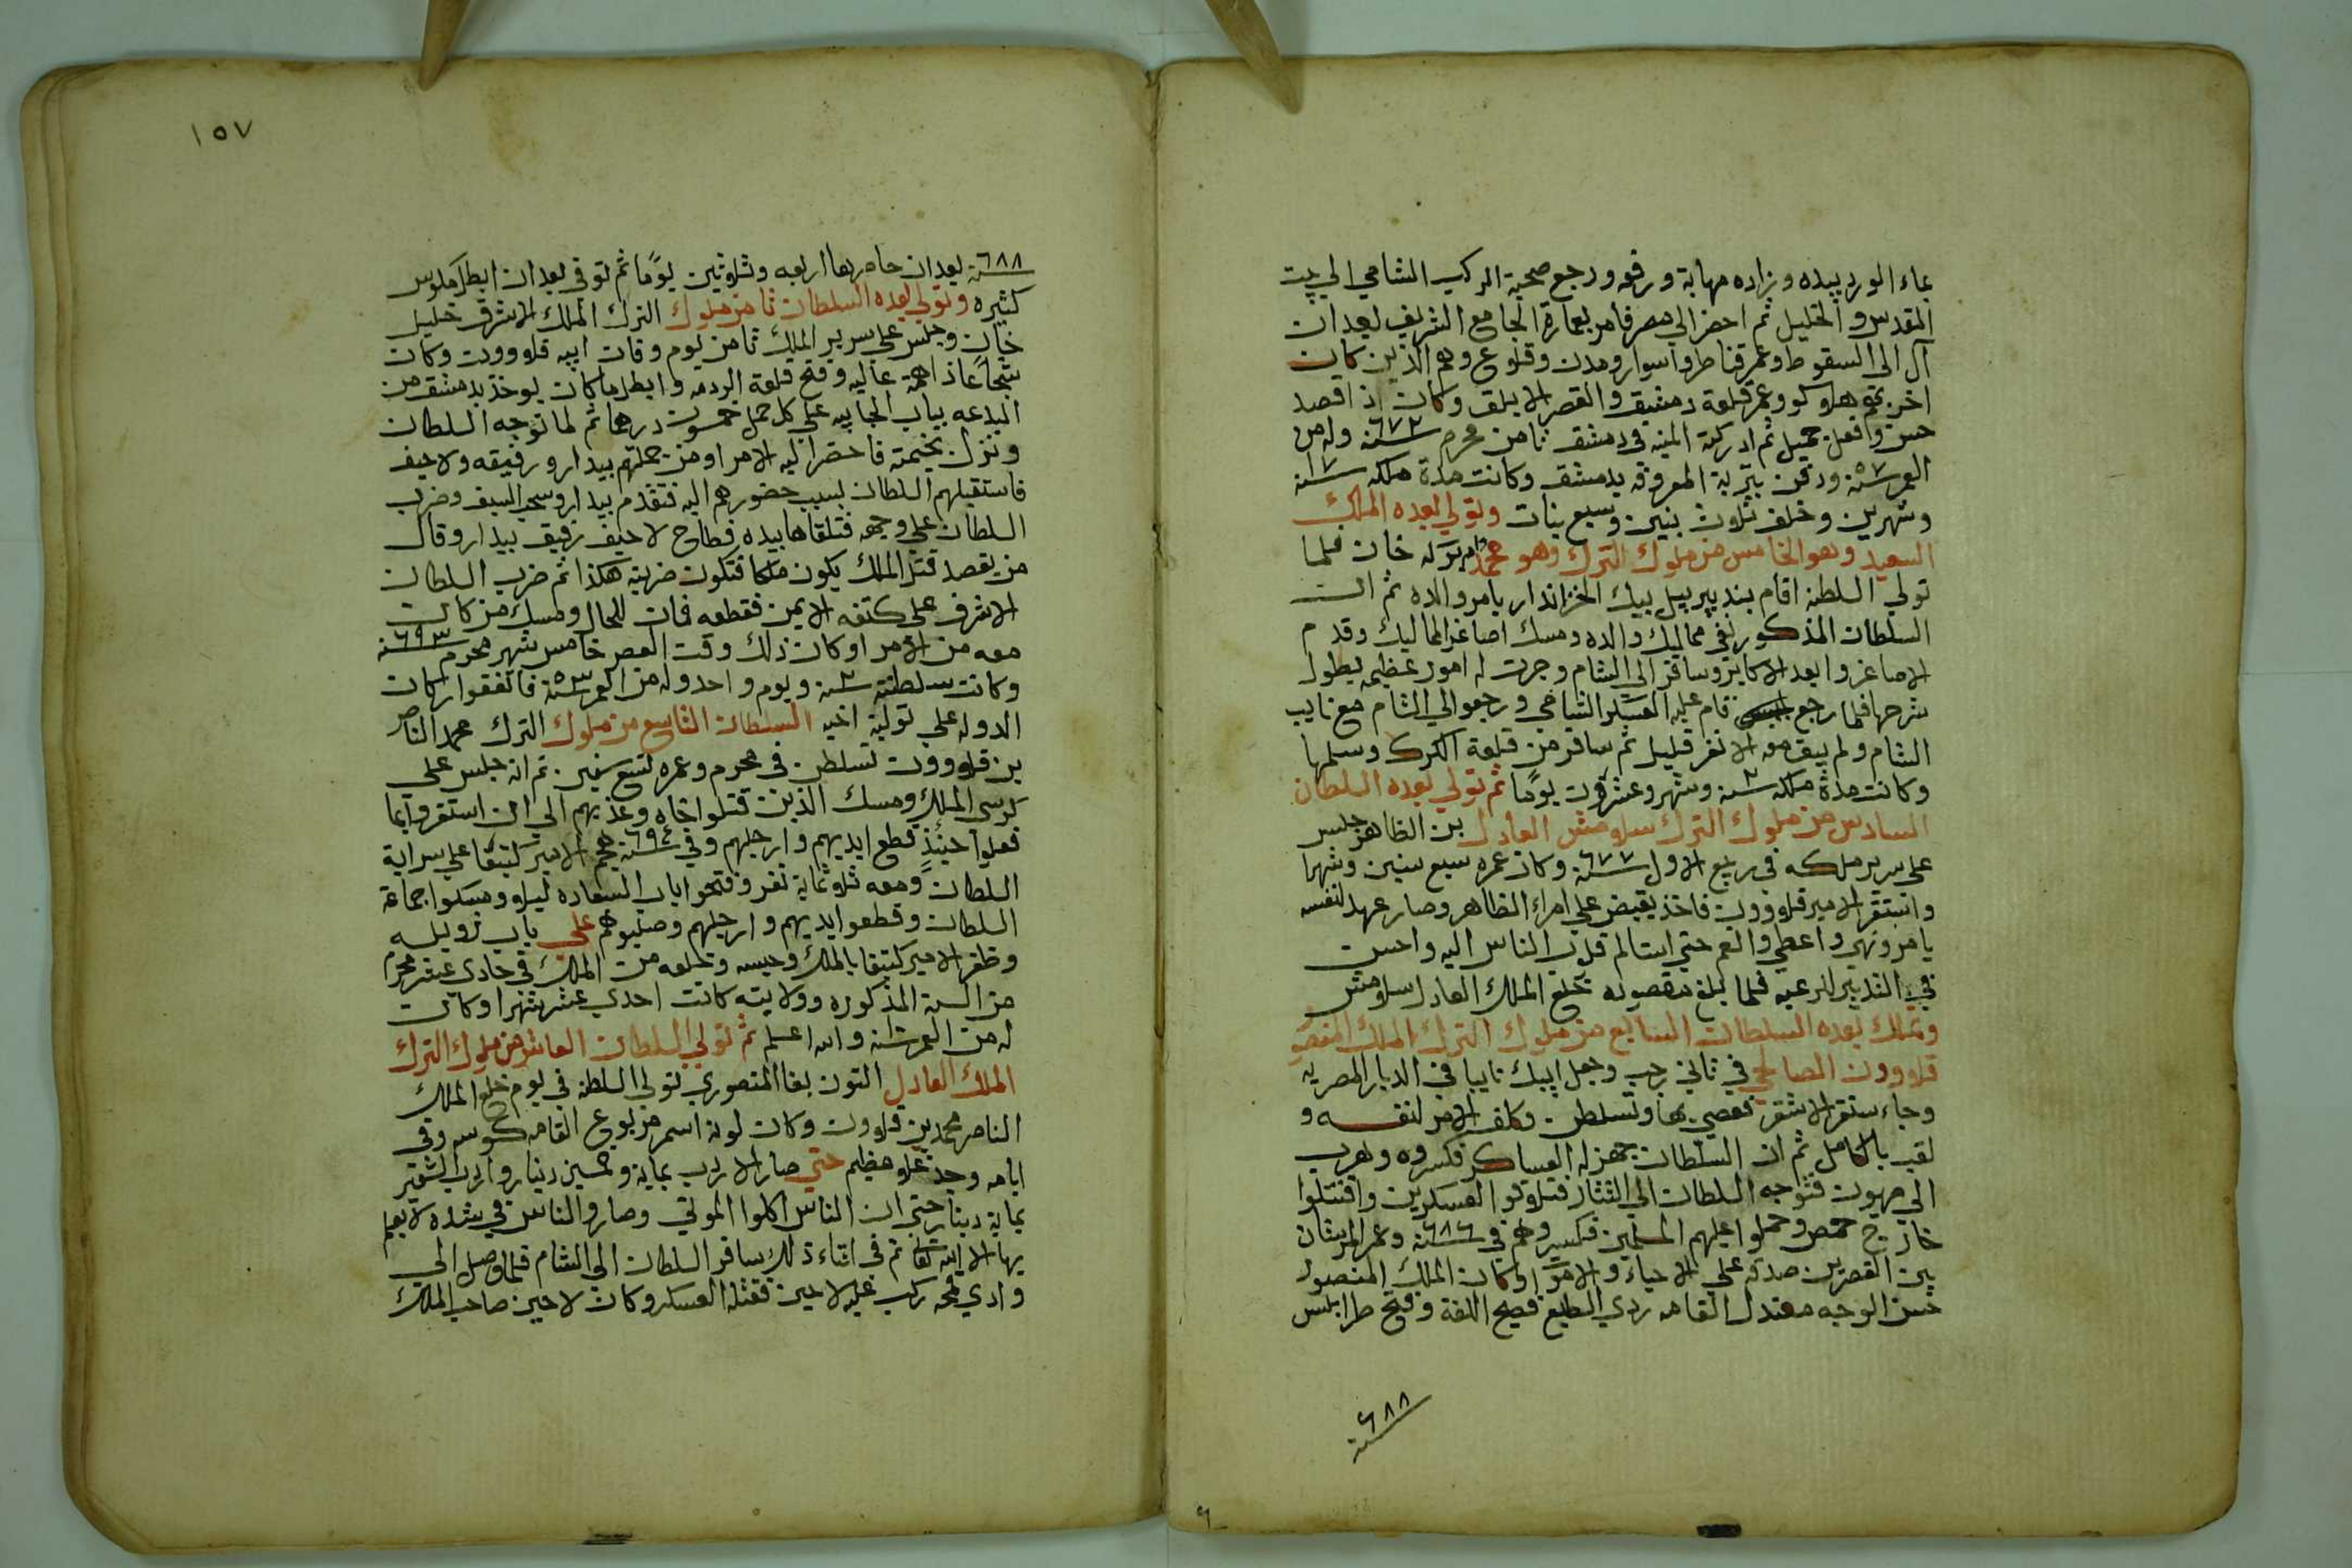 بماء الورد بيده وزاده مهابة ورفعه ورجع صحبة الركب الشامي الي بيت
المقدس والخليل ثم احضر الي مصر فامر بعمارة الجامع الشريف بعد ان
آل الى السقوط وعمر قناطر واسوار ومدن وقلوع وهم الذين كان
اخربهم هلاكو وعمر قلعة دمشق والقصر الابلق وكان ذا قصد
حسن وافعل جميل ثم ادركته المنيه في دمشق ثامن محرم سنة ٦٧٢ وله من
العمر ٥٧ سنة ودفن بتربة المعروفه بدمشق وكانت مدة ملكه ١٧ سنة
وشهرين وخلف ثلاث بنين وسبع بنات وتولي بعده الملك
السعيد وهو الخامس من ملوك الترك وهو محمد بركه خان فلما
تولي السلطنه اقام بتدبير بيبك الخزاندار بامر والده ثم ان
السلطان المذكور نفي مماليك والده ومسك اصاغر المماليك وقدم
الاصاغر وابعد الاكابر وسافر الي الشام وجرت له امور عظيمه يطول
شرحها فلما رجع قام عليه العسكر الشامي ورجعوا الي الشام مع نايب
الشام ولم يبق معه الا نفر قليل ثم سافر من قلعة الكرك وسلمها
وكانت مدة ملكه ٢ سنة وشهر وعشرون يومًا ثم تولي بعده السلطان
السادس من ملوك الترك سلامش العادل بن الظاهر جلس
على سرير ملكه في ربيع الاول سنة ٦٧٧ وكان عمره سبع سنين وشهرا
واستقر الامير قلاوون فاخذ يقبض علي امراء الظاهر وصار عهد لنفسه
يامر ونهي واعطي والعم حتي استالم قلوب الناس اليه واحسن
في التدبير للرعيه فلما بلغ مقصوده خلع الملك العادل سلامش
وتملك بعده السلطان السابع من ملوك الترك الملك المنصور
قلاوون الصالحي في ثاني رجب وجعل ايبك نايبا في الديار المصريه
وجاء سنقر الاشقر فعصي بها وتسلطن وكلف الامر لنفسه و
لقب بالكامل ثم ان السلطان جهز له العساكر فكسروه وهرب
الي صهيون فتوجه السلطان الي التتار فتلاقوا العسكرين واقتتلوا
خارج حمص وحملوا عليهم المسلمين فكسروهم في سنة ٦٨٦ وعمر المرستان
بين القصرين صدقه علي الاحياء والاموات وكان الملك المنصور
حسن الوجه معتدل القامه ردي الطبع فصيح اللغة وفتح طرابلس
سنة ٦٨٨
١٥٧
سنة ٦٨٨ بعد ان حاصرها اربعه وثلاثين يومًا ثم توفي بعد ان ابطل مكوس
كثيره وتولي بعده السلطان ثامن ملوك الترك الملك الاشرف خليل
خان وجلس علي سرير الملك ثامن يوم وفات ابيه قلاوون وكان
شجاعا ذا همة عاليه وفتح قلعة الرومه وابطل ما كان يوخذ بدمشق من
البدعه بباب الجابيه علي كل حمل خمسون درهما ثم لما توجه السلطان
ونزل بخيمته فاحضر اليه الامرا ومن جملتهم بيدار ورفيقه ولاجين
فاستقبلهم السلطان بسبب حضورهم اليه فتقدم بيدار وسحب السيف وضرب
السلطان علي وجهه فتلقاها بيده فطاح لاجين رفيق بيدار وقال
من يقصد قتل الملك يكون ملكا فتكون ضربته هكذا ثم ضرب السلطان
الاشرف على كتفه الايمن فقطعه فمات للحال ومسك من كان
معه من الامرا وكان ذلك وقت العصر خامس شهر محرم سنة ٦٩٣
وكانت سلطنته ٢ سنة ويوم واحد وله من العمر ٥٣ سنة فاتفقوا اركان
الدوله علي تولية اخيه السلطان التاسع من ملوك الترك محمد الناصر
بن قلاوون تسلطن في محرم وعمره تسع سنين ثم انه جلس علي
كرسي الملك ومسك الذين قتلوا اخاه وعذبهم الي ان استقروا بما
فعلوا حينئذٍ قطع ايديهم وارجلهم وفي سنة ٦٩٤ هجم الامير كتبغا علي سراية
السلطان ومعه ثلاثماية نفر وفتحوا باب السعاده ليلا ومسكوا جماعة
السلطان وقطعوا ايديهم وارجلهم وصلبوهم علي باب زويله
وظفر الامير كتبغا بالملك وحبسه وخلعه من الملك في حادي عشر محرم
من السنة المذكوره وولايته كانت احدي عشر شهرا وكان
له من العمر سنة والله اعلم ثم تولي السلطان العاشر من ملوك الترك
الملك العادل التون بغا المنصوري تولي السلطنه في يوم خلع الملك
الناصر محمد بن قلاوون وكان لونه اسمر مربوع القامه كوسه وفي
ايامه وجد غلاء عظيم حتي صار الاردب بماية وخمسين دينار واردب الشعير
بماية دينار حتي ان الناس اكلوا الموتي وصاروا الناس في شده لا يعلم
بها الا الله تعالى ثم في اثناء ذلك سافر السلطان الي الشام فلما وصل الي
وادي فحمه ركب عليه لاجين فقتله العسكر وكان لاجين صاحب الملك